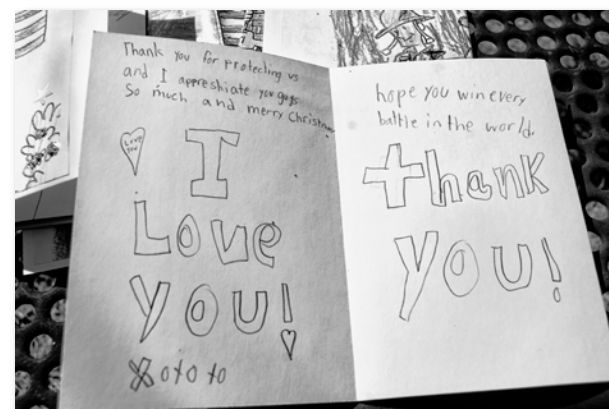 Thank you for protecting us
and I appreshiate you guys
So much and merry Christmas
Love
you
I
Love
You!
Xoxoxo
hope you win every
battle in the world.
thank
you!